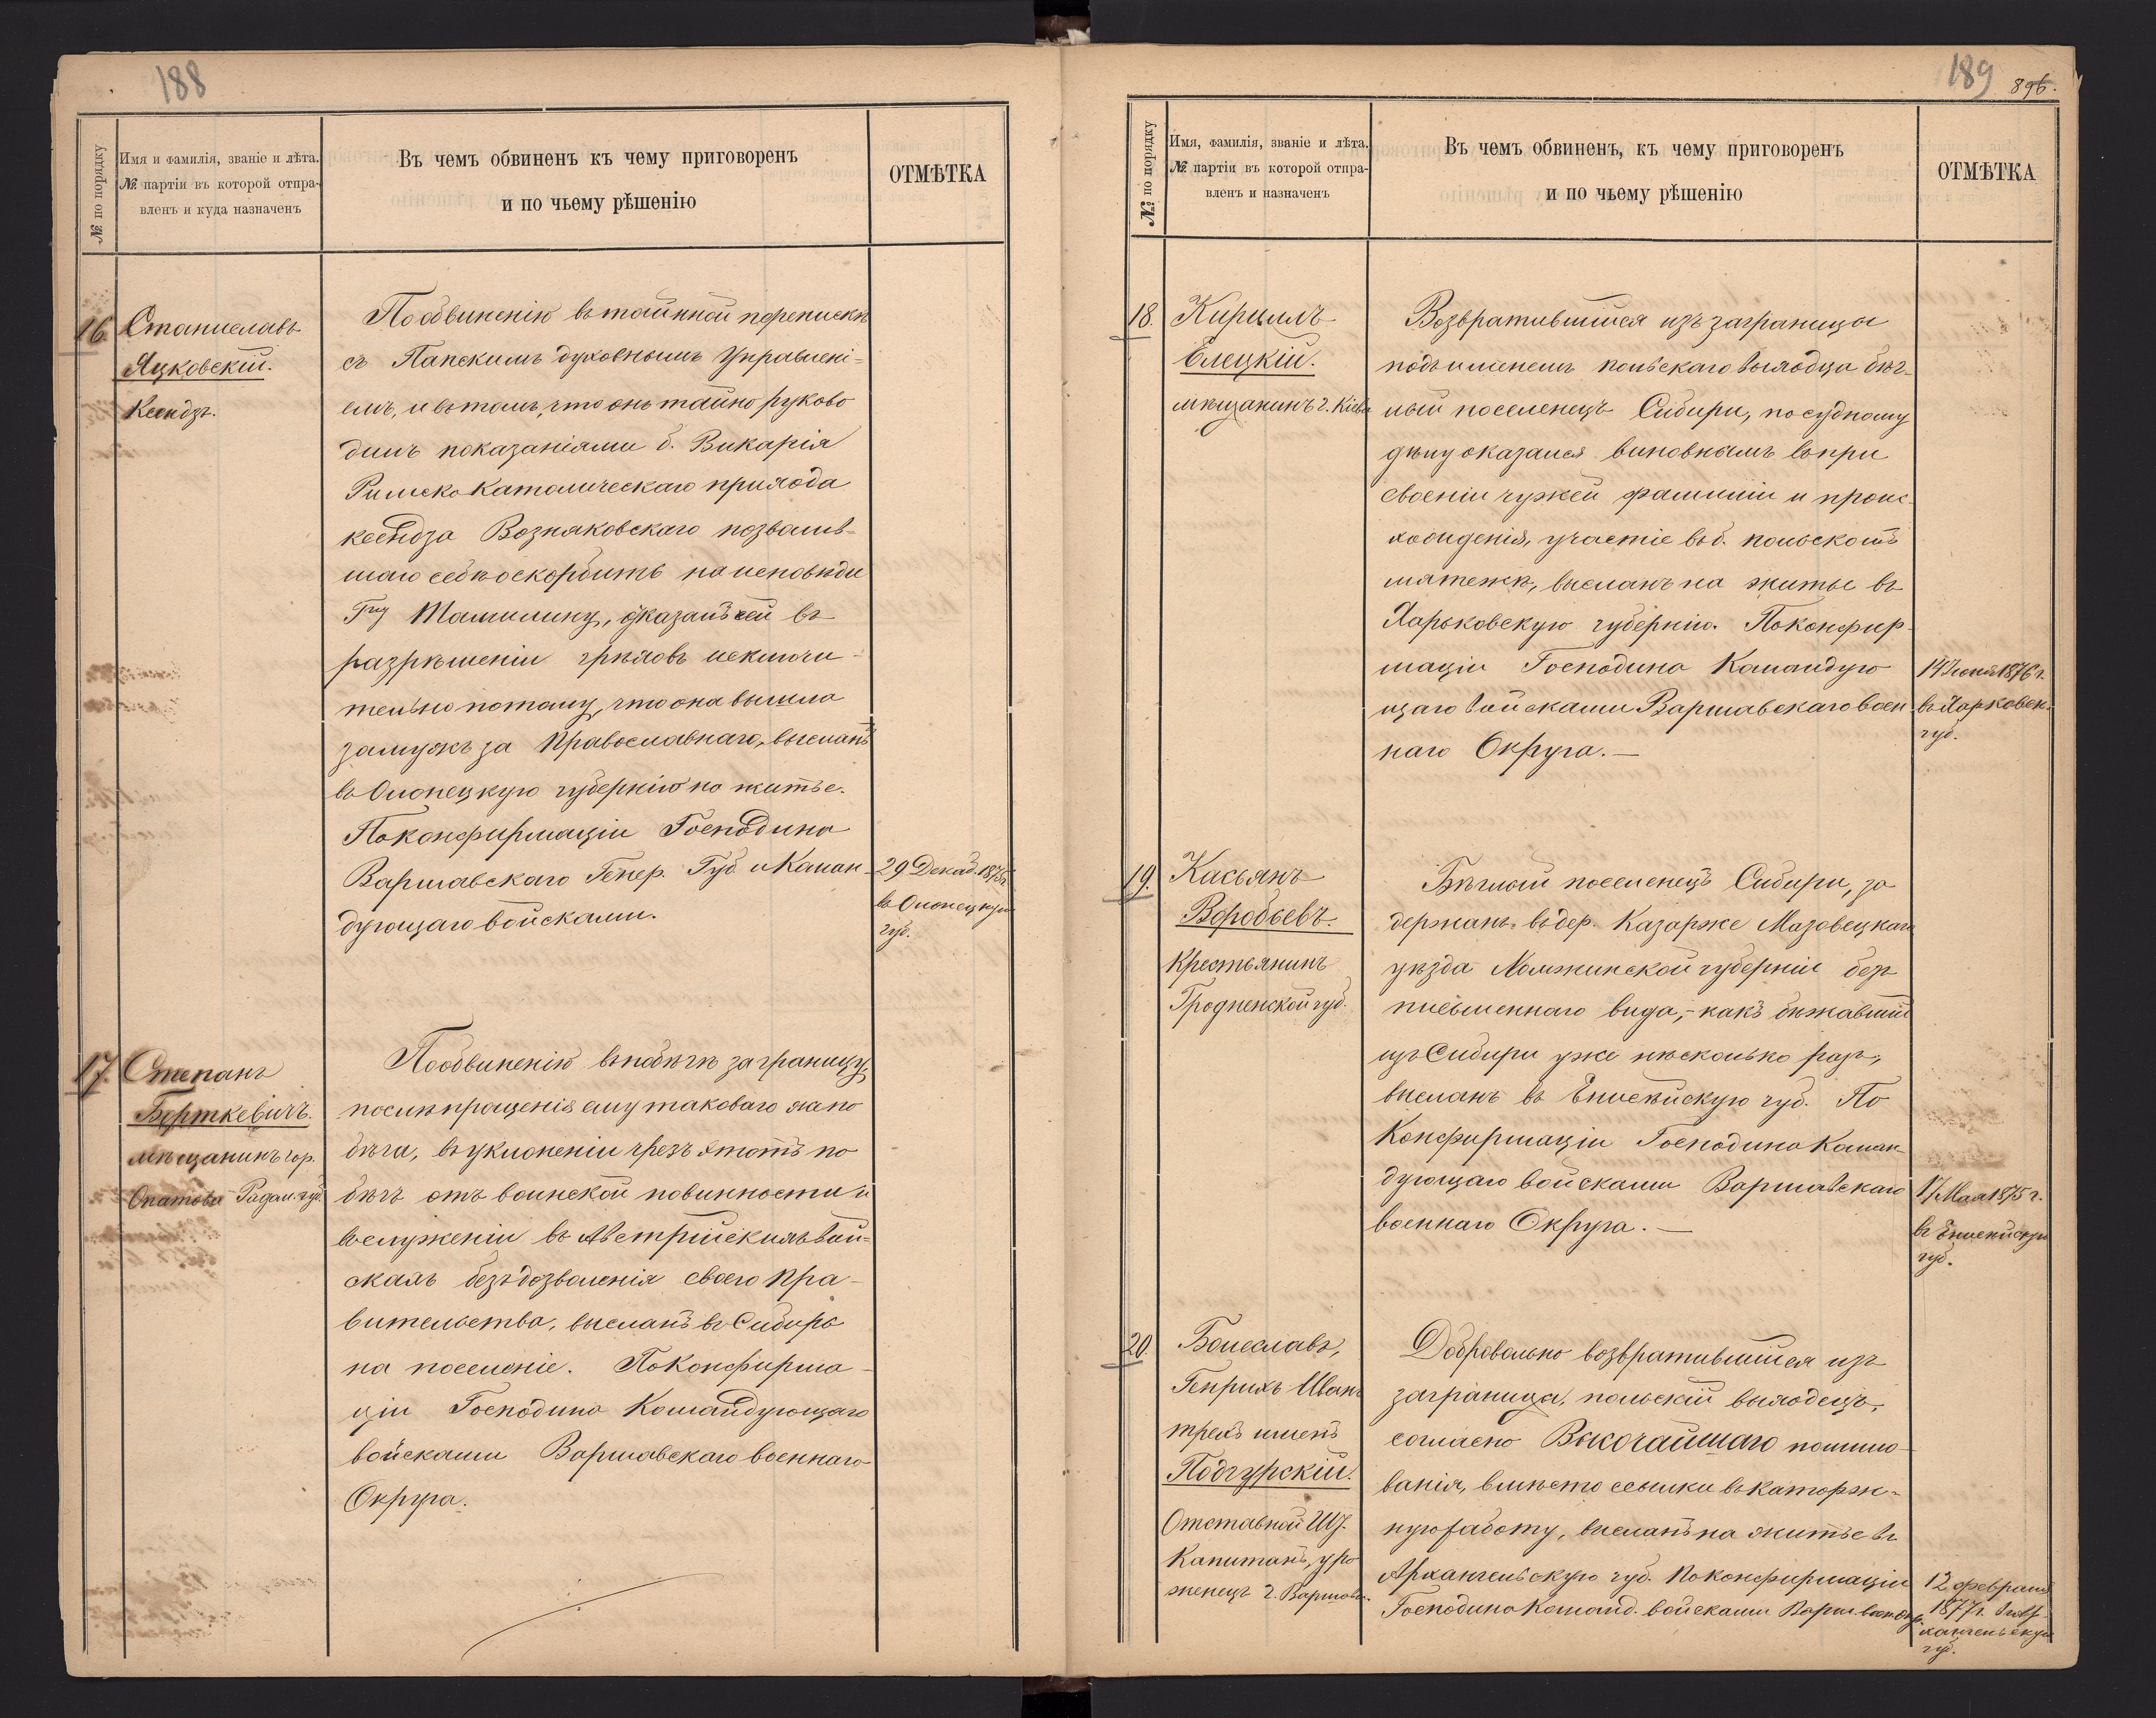 188
№ по порядку
Имя и фамилія, званіе и лѣта.
№ партіи въ которой отпра-
вленъ и куда назначенъ
Въ чемъ обвиненъ къ чему приговоренъ
и по чьему рѣшенію
ОТМѢТКА
16. Станиславъ
Яцковскій.
Ксендзъ.
По обвиненію въ тайной перепискѣ
съ Папскимъ духовнымъ Управлені-
емъ, и въ томъ, что онъ тайно руково
дилъ показаніями б. Викарія
Римско Католическаго прихода
ксендза Возняковскаго позволив-
шаго себѣ оскорбить на исповѣди
Г-жу Мамилину, отказавъ ей въ
разрѣшеніи грѣховъ исключи-
тельно потому, что она вышла
замужъ за Православнаго, высланъ
въ Олонецкую губернію на житье.
По конфирмаціи Господина
Варшавскаго Генер. Губ. и Коман-
дующаго войсками.
29 Декаб. 1875 г.
въ Олонецкую
губ.
17. Степанъ
Борткевичъ.
мѣщанинъ гор.
Опатова Радом. губ.
По обвиненію въ побѣгѣ за границу,
послѣ прощенія ему таковаго же по
бѣга, въ уклоненіи чрезъ этотъ по
бѣгъ отъ воинской повинности и
въ служеніи въ Австрійскихъ вой-
скахъ безъ дозволенія своего Пра-
вительства, высланъ въ Сибирь
на поселеніе. По Конфирма-
ціи Господина Командующаго
войсками Варшавскаго военнаго
Округа.
189
896.
№ по порядку
Имя, фамилія, званіе и лѣта.
№ партіи въ которой отпра-
вленъ и назначенъ
Въ чемъ обвиненъ, къ чему приговоренъ
и по чьему рѣшенію
ОТМѢТКА
18. Кирилъ
Елецкій.
мѣщанинъ г. Кіева
Возвратившійся изъ заграницы
подъ именемъ польскаго выходца бѣг-
лый поселенецъ Сибири, по судному
дѣлу оказался виновнымъ въ при
своеніи чужей фамиліи и проис-
хожденія, участіе въ б. польскомъ
мятежѣ, высланъ на житье въ
Харьковскую губернію. По конфир-
маціи Господина Командую
щаго войсками Варшавскаго воен
наго Округа. —
14 Іюня 1876 г.
въ Харковск.
губ.
19. Касьянъ
Воробьевъ.
Крестьянинъ
Гродненской губ.
Бѣглый поселенецъ Сибири, за
держанъ въ дер. Казарже Мазовецкаго
уѣзда Ломжинской губерніи безъ
письменнаго вида, - какъ бѣжавшій
изъ Сибири уже нѣсколько разъ,
высланъ въ Енисейскую губ. По
Конфирмаціи Господина Коман-
дующаго войсками Варшавскаго
военнаго Округа. —
17 Мая 1875 г.
въ Енисейскую
губ.
20. Болеславъ,
Генрихъ Иванъ
трехъ именъ
Подгурскій.
Отставной Шт.
Капитанъ, уро
женецъ г. Варшавы.
Добровольно возвратившійся изъ
заграницы, польскій выходецъ,
согласно Высочайшаго помило-
ванія, вмѣсто ссылки въ каторж-
ную работу, высланъ на житье въ
Архангельскую губ. По конфирмаціи
Господина Команд. войсками Варш. воен. Окр.
12 февраля
1877 г. въ Ар-
хангельскую
губ.